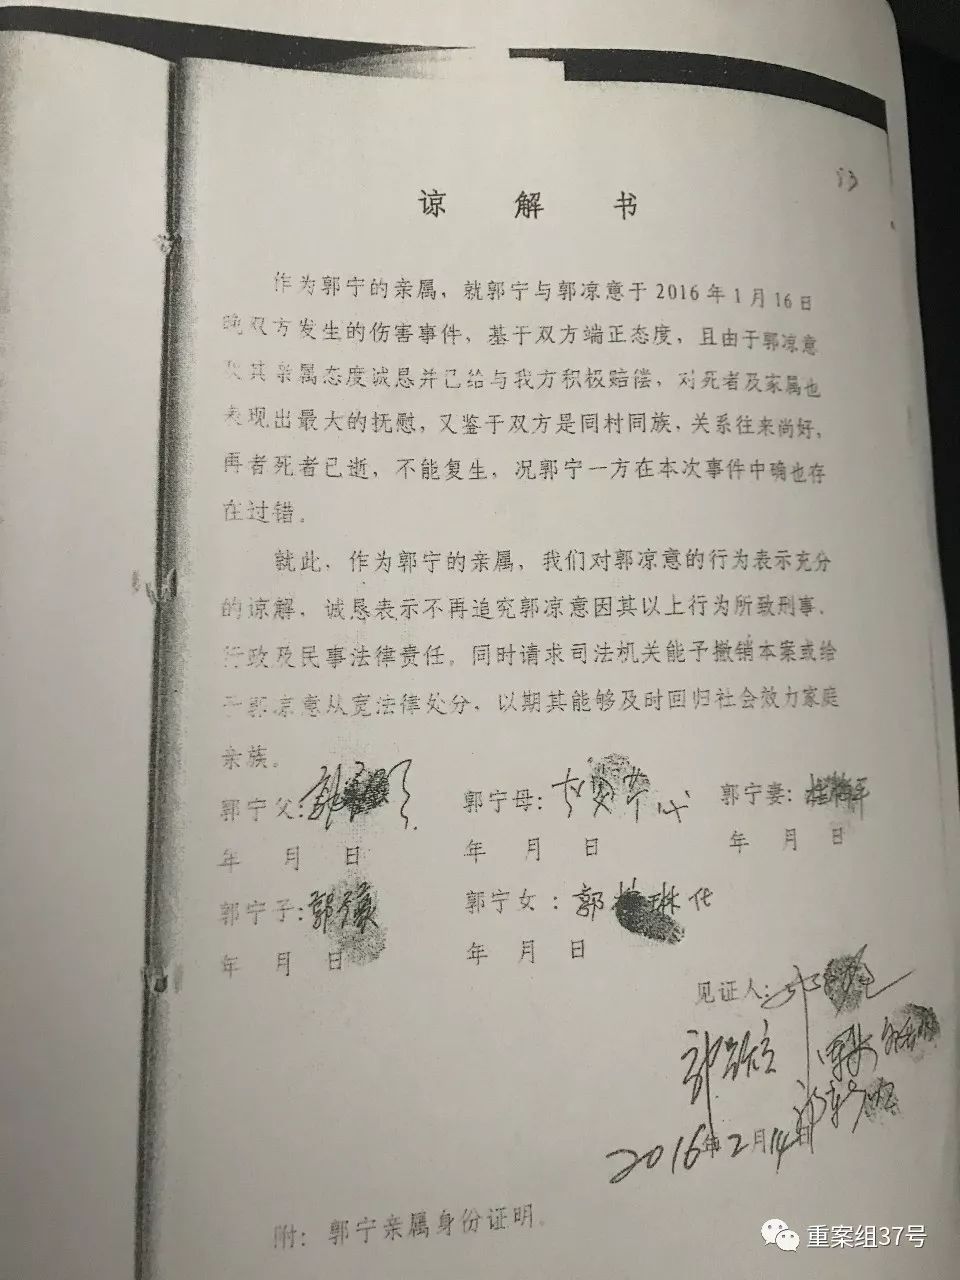 13
谅 解 书
作为郭宁的亲属，就郭宁与郭凉意于2016年1月16日
晚双方发生的伤害事件，基于双方端正态度，且由于郭凉意
及其亲属态度诚恳并已给与我方积极赔偿，对死者及家属也
表现出最大的抚慰，又鉴于双方是同村同族，关系往来尚好，
再者死者已逝，不能复生，况郭宁一方在本次事件中确也存
在过错。
就此，作为郭宁的亲属，我们对郭凉意的行为表示充分
的谅解，诚恳表示不再追究郭凉意因其以上行为所致刑事、
行政及民事法律责任。同时请求司法机关能予撤销本案或给
于郭凉意从宽法律处分，以期其能够及时回归社会效力家庭
亲族。
郭宁父：郭 郭宁母： 郭宁妻：
年 月 日 年 月 日 年 月 日
郭宁子：郭 郭宁女：郭 琳 代
年 月 日 年 月 日
见证人：
2016年2月14日
附：郭宁亲属身份证明。
重案组37号